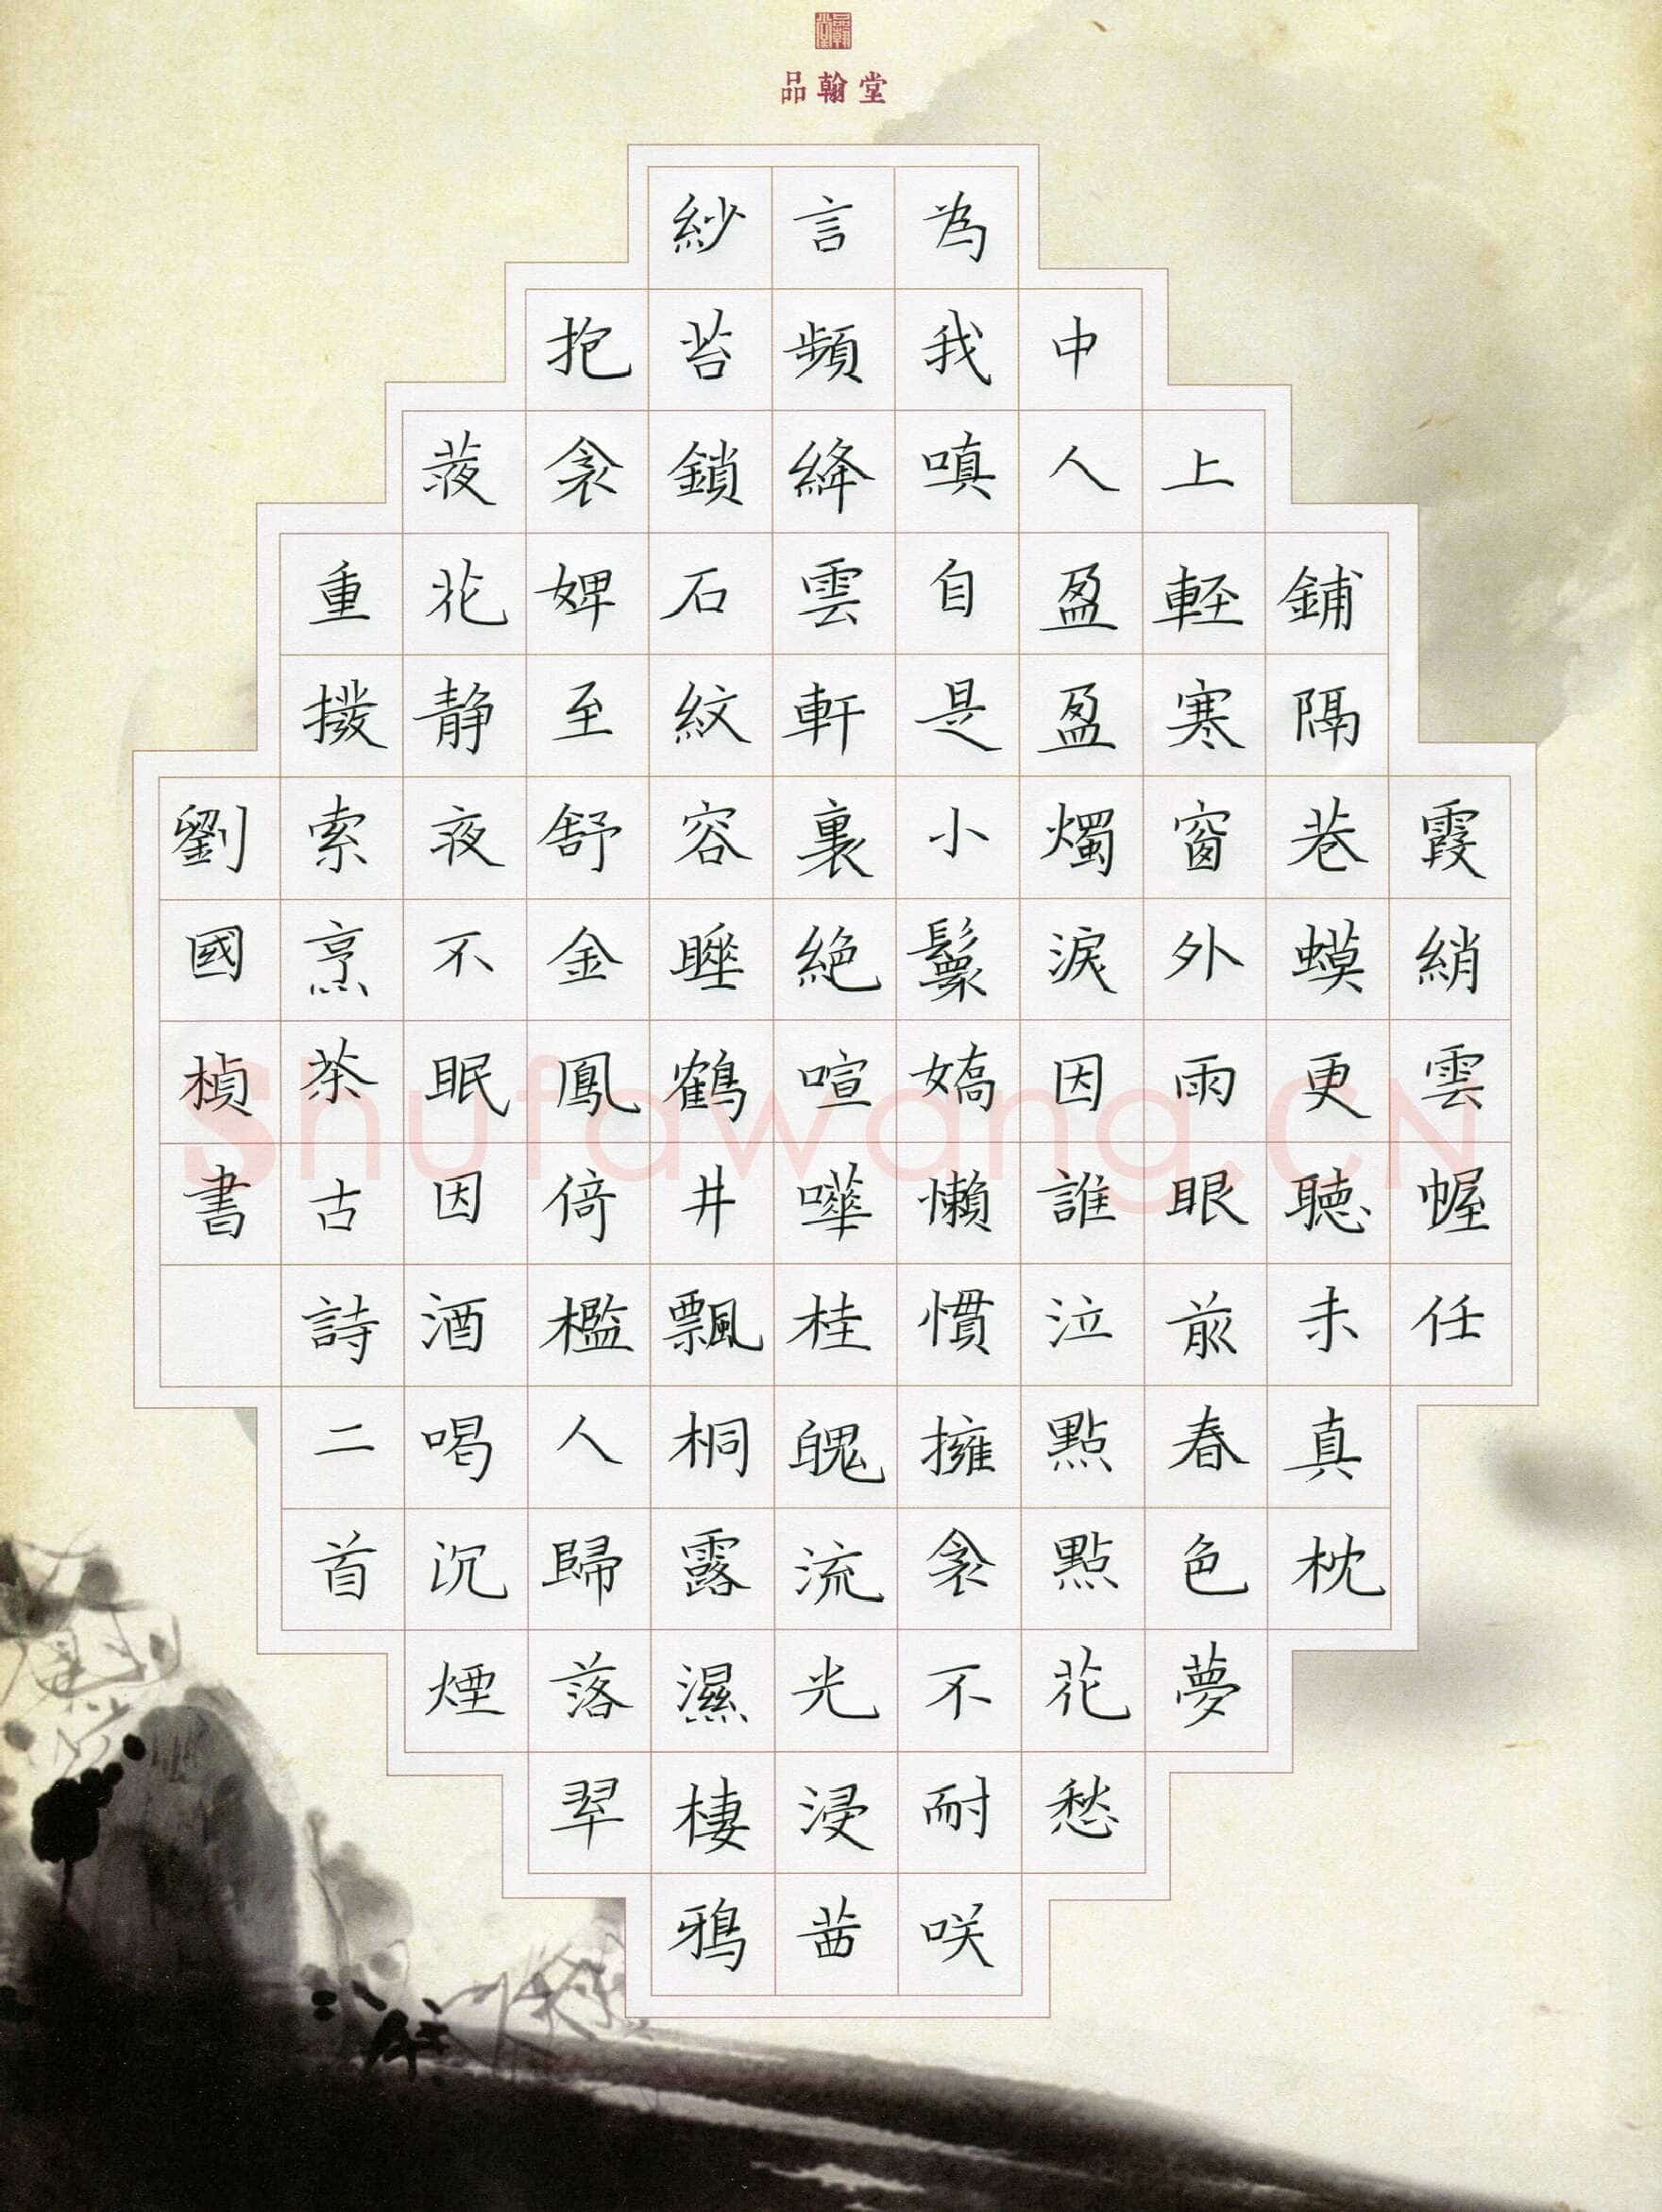 品翰堂
霞綃雲幄任
鋪隔巷蟆更聽未真枕
上輕寒窗外雨眼前春色夢
中人盈盈燭淚因誰泣點點花愁
為我嗔自是小鬟嬌懶慣擁衾不耐咲
言頻絳雲軒裏絕喧嘩桂魄流光浸茜
紗苔鎖石紋容睡鶴井飄桐露濕棲鴉
抱衾婢至舒金鳳倚檻人歸落翠
花静夜不眠因酒喝沉煙
重撥索烹茶古詩二首
劉國楨書
Shufawang.CN